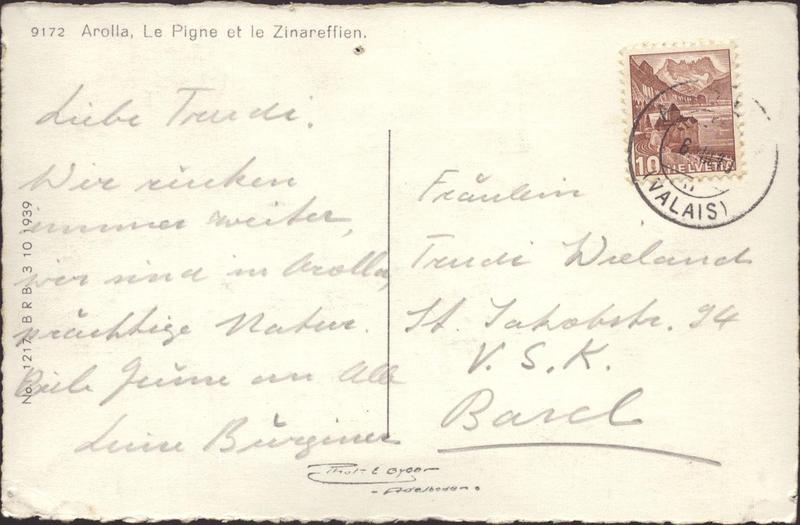 9172 Arolla, Le Pigne et le Zinareffien.
Liebe Trudi.
Wir rücken
immer weiter,
wir sind in Arolla,
prächtige Natur.
Viele an Alle
Bürgines
Fräulein
Trudi Wieland
St. Jakobstr. 94
V. S. K.
Basel
No. 1217 BRB 3 10 1939
10 HELVETIA
(VALAIS)
Phot. E. Gyger
- Adelboden.